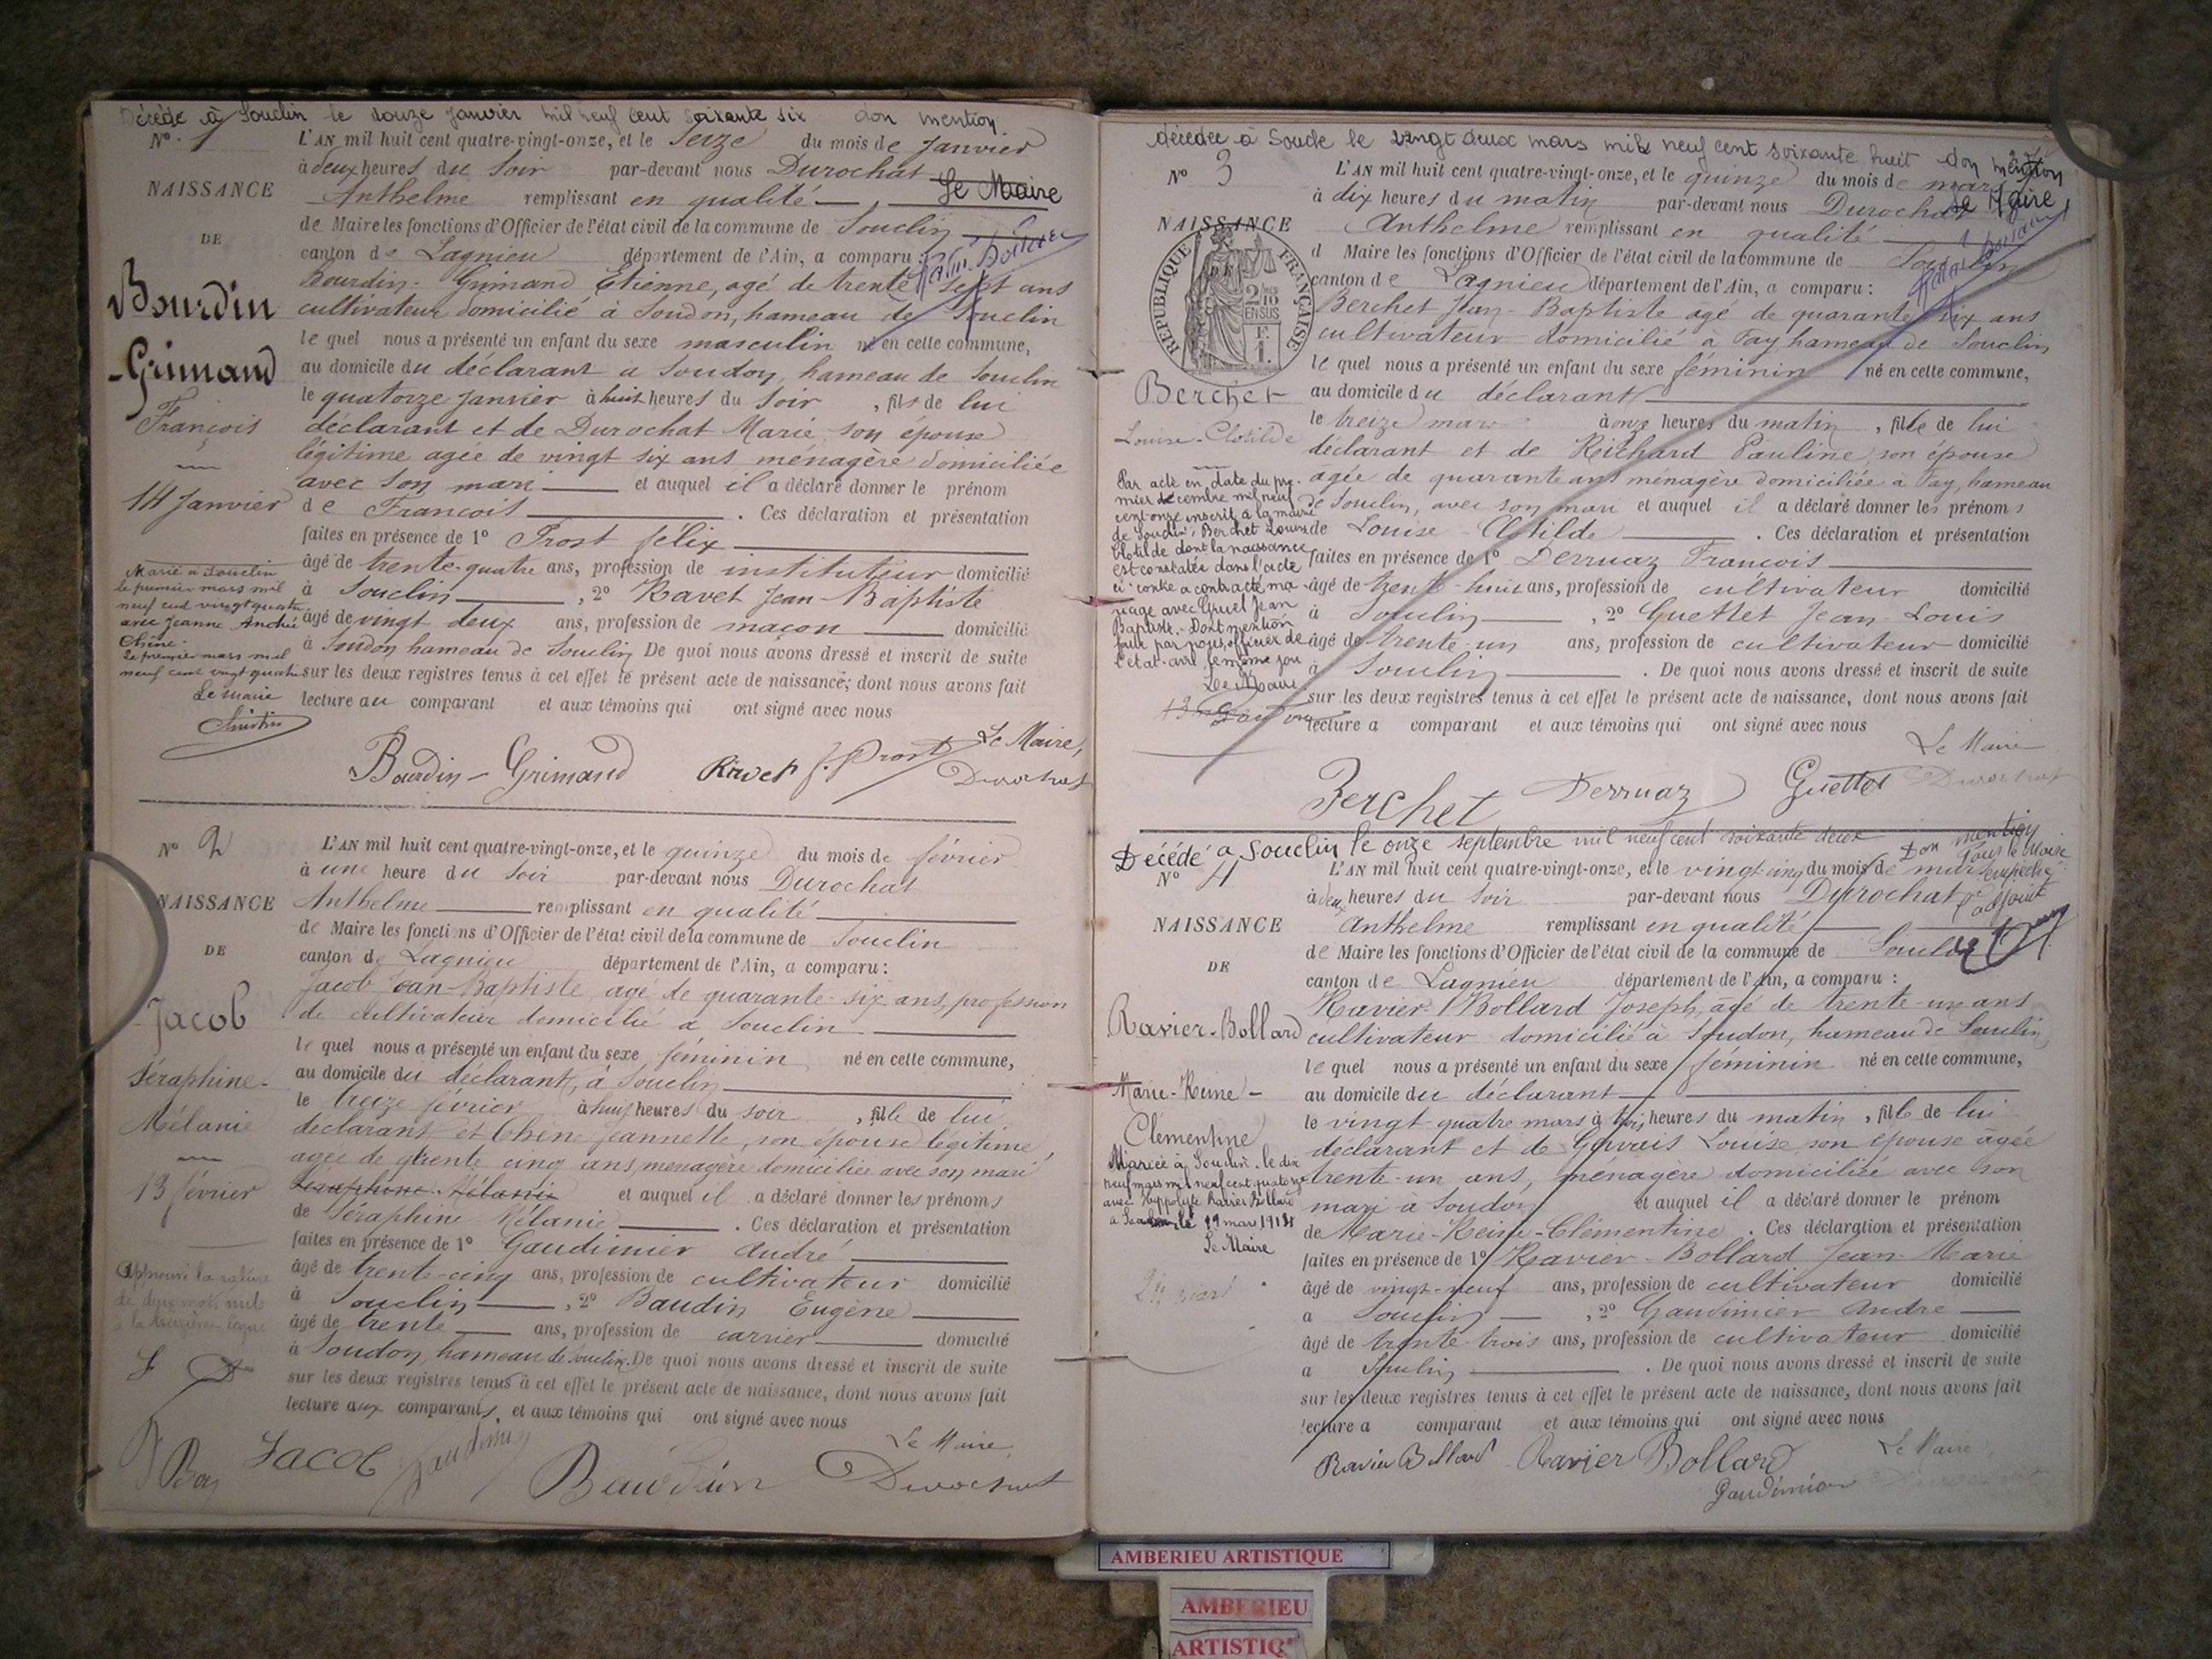 Décédé à Souclin le douze janvier mil neuf cent soixante six don mention
Le Maire
N° 1
NAISSANCE
DE
Bourdin
-Grimand
François
14 Janvier
Marié à Souclin
le premier mars mil
neuf cent vingt quatre
avec Jeanne Andrée
Chêne
Le premier mars mil
neuf cent vingt quatre
Le Maire
L'AN mil huit cent quatre-vingt-onze, et le seize du mois de Janvier
à deux heures du soir par-devant nous Durochat
Anthelme remplissant en qualité
de Maire les fonctions d'Officier de l'état civil de la commune de Souclin
canton de Lagnieu département de l'Ain, a comparu :
Bourdin-Grimand Etienne, agé de trente sept ans
cultivateur domicilié à Soudon, hameau de Souclin
le quel nous a présenté un enfant du sexe masculin né en cette commune,
au domicile du déclarant a Soudon, hameau de Souclin
le quatorze janvier à huit heures du soir, fils de lui
déclarant et de Durochat Marie son épouse
légitime agée de vingt six ans ménagère domiciliée
avec son mari et auquel il a déclaré donner le prénom
de François. Ces déclaration et présentation
faites en présence de 1° Prost félix
âgé de trente-quatre ans, profession de instituteur domicilié
à Souclin, 2° Ravet Jean-Baptiste
âgé de vingt deux ans, profession de maçon domicilié
à Soudon hameau de Souclin De quoi nous avons dressé et inscrit de suite
sur les deux registres tenus à cet effet le présent acte de naissance; dont nous avons fait
lecture au comparant et aux témoins qui ont signé avec nous
Le Maire,
Bourdin-Grimand Ravet f. Prost Durochat
N° 2
NAISSANCE
DE
Jacob
Séraphine-
Mélanie
13 février
Approuvé la rature
de deux mots nuls
à la treizième ligne
L'AN mil huit cent quatre-vingt-onze, et le quinze du mois de février
à une heure du soir par-devant nous Durochat
Anthelme remplissant en qualité
de Maire les fonctions d'Officier de l'état civil de la commune de Souclin
canton de Lagnieu département de l'Ain, a comparu :
Jacob Jean-Baptiste agé de quarante-six ans, profession
de cultivateur domicilié à Souclin
le quel nous a présenté un enfant du sexe féminin né en cette commune,
au domicile du déclarant, à Souclin
le treize février à huit heures du soir, fille de lui
déclarant et Chêne Jeannette, son épouse légitime,
agée de trente cinq ans, menagère domiciliée avec son mari
Séraphine Mélanie et auquel il a déclaré donner les prénoms
de Séraphine Mélanie. Ces déclaration et présentation
faites en présence de 1° Gaudimier André
âgé de trente-cinq ans, profession de cultivateur domicilié
à Souclin, 2° Baudin Eugène
âgé de trente ans, profession de carrier domicilié
à Soudon, hameau de Souclin. De quoi nous avons dressé et inscrit de suite
sur les deux registres tenus à cet effet le présent acte de naissance, dont nous avons fait
lecture aux comparants, et aux témoins qui ont signé avec nous
Le Maire
JACOB Gaudimier Baudin Durochat
décédée à Soucle le vingt deux mars mil neuf cent soixante huit don mention
Le Maire
N° 3
NAISSANCE
RÉPUBLIQUE FRANÇAISE
Berchet
Louise-Clotilde
Par acte en date du pre-
mier décembre mil neuf
cent onze inscrit à la mairie
de Souclin, Berchet Louise
Clotilde dont la naissance
est constatée dans l'acte
ci-contre a contracté ma-
riage avec Gruel Jean
Baptiste. Dont mention
faite par nous, officier de
l'état-civil le même jour
Le Maire
L'AN mil huit cent quatre-vingt-onze, et le quinze du mois de mars
à dix heures du matin par-devant nous Durochat
Anthelme remplissant en qualité
d Maire les fonctions d'Officier de l'état civil de la commune de Souclin
canton de Lagnieu département de l'Ain, a comparu :
Berchet Jean-Baptiste agé de quarante six ans
cultivateur domicilié à Fay hameau de Souclin
le quel nous a présenté un enfant du sexe féminin né en cette commune,
au domicile du déclarant
le treize mars à onze heures du matin, fille de lui
déclarant et de Reichard Pauline son épouse
agée de quarante ans ménagère domiciliée à Fay, hameau
de Souclin, avec son mari et auquel il a déclaré donner les prénoms
de Louise-Clotilde. Ces déclaration et présentation
faites en présence de 1° Derruaz François
âgé de trente-huit ans, profession de cultivateur domicilié
à Souclin, 2° Guettet Jean-Louis
âgé de trente-un ans, profession de cultivateur domicilié
à Souclin. De quoi nous avons dressé et inscrit de suite
sur les deux registres tenus à cet effet le présent acte de naissance, dont nous avons fait
lecture a comparant et aux témoins qui ont signé avec nous
Le Maire
Berchet Derruaz Guettet Durochat
Décédé à Souclin le onze septembre mil neuf cent soixante deux Don mention
Pour le Maire
empêché
l'adjoint
N° 4
NAISSANCE
DE
Ravier-Bollard
Marie-Reine-
Clémentine
Mariée à Souclin le dix
neuf mars mil neuf cent quatorze
avec Hippolyte Ravier Bollard
à Souclin le 19 mars 1914
Le Maire
24 mars
L'AN mil huit cent quatre-vingt-onze, et le vingt-cinq du mois de mars
à deux heures du soir par-devant nous Durochat
Anthelme remplissant en qualité
de Maire les fonctions d'Officier de l'état civil de la commune de Souclin
canton de Lagnieu département de l'Ain, a comparu :
Ravier-Bollard Joseph, âgé de trente-un ans
cultivateur domicilié à Soudon, hameau de Souclin,
le quel nous a présenté un enfant du sexe féminin né en cette commune,
au domicile du déclarant
le vingt-quatre mars à trois heures du matin, fille de lui
déclarant et de Gervais Louise son épouse âgée
trente-un ans, ménagère domiciliée avec son
mari à Soudon et auquel il a déclaré donner le prénom
de Marie-Reine-Clémentine. Ces déclaration et présentation
faites en présence de 1° Ravier-Bollard Jean-Marie
âgé de vingt-neuf ans, profession de cultivateur domicilié
a Souclin, 2° Gaudimier André
âgé de trente-trois ans, profession de cultivateur domicilié
a Souclin. De quoi nous avons dressé et inscrit de suite
sur les deux registres tenus à cet effet le présent acte de naissance, dont nous avons fait
lecture a comparant et aux témoins qui ont signé avec nous
Le Maire
Ravier Bollard Ravier Bollard
Gaudimier
AMBERIEU ARTISTIQUE
AMBERIEU
ARTISTIQ